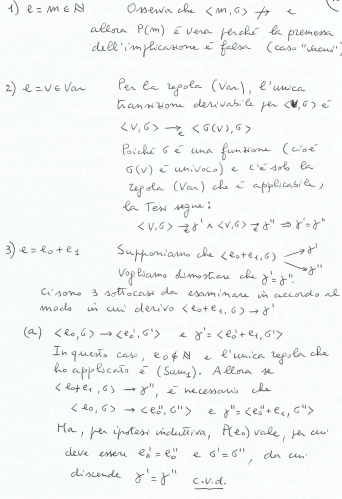 1) e = m ∈ ℕ Osserva che <m, σ> ↛ e
allora P(m) è vera perché la premessa
dell'implicazione è falsa (caso "vacuo")
2) e = v ∈ Var Per la regola (Var), l'unica
transizione derivabile per <v, σ> è
<v, σ> →e <σ(v), σ>
Poiché σ è una funzione (cioè
σ(v) è univoco) e c'è solo la
regola (Var) che è applicabile,
la Tesi segue:
<v, σ> →e γ' ∧ <v, σ> →e γ'' ⇒ γ' = γ''
3) e = e0 + e1 Supponiamo che <e0+e1, σ> → γ'
→ γ''
Vogliamo dimostrare che γ' = γ''.
Ci sono 3 sottocasi da esaminare in accordo al
modo in cui derivo <e0+e1, σ> → γ'
(a) <e0, σ> → <e0', σ'> e γ' = <e0'+e1, σ'>
In questo caso, e0 ∉ ℕ e l'unica regola che
ho applicato è (Sum1). Allora se
<e0+e1, σ> → γ'', è necessario che
<e0, σ> → <e0'', σ''> e γ'' = <e0''+e1, σ''>
Ma, per ipotesi induttiva, P(e0) vale, per cui
deve essere e0' = e0'' e σ' = σ'', da cui
discende γ' = γ'' c.v.d.